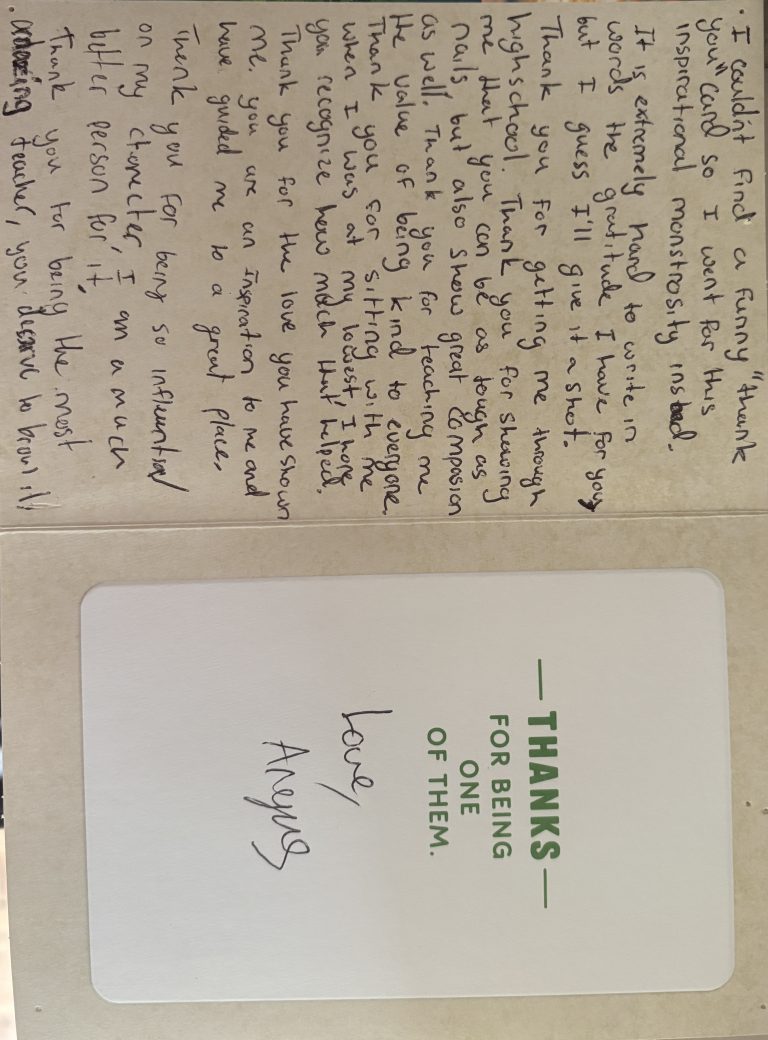 • I couldn't find a funny "thank
you" card so I went for this
inspirational monstrosity instead.
It is extremely hard to write in
words the gratitude I have for you,
but I guess I'll give it a shot.
Thank you for getting me through
highschool. Thank you for showing
me that you can be as tough as
nails, but also show great compasion
as well. Thank you for teaching me
the value of being kind to everyone.
Thank you for sitting with me
when I was at my lowest, I hope
you recognize how much that helped.
Thank you for the love you have shown
me. you are an inspiration to me and
have guided me to a great place.
Thank you for being so influential
on my charecter, I am a much
better person for it.
Thank you for being the most
teacher, you deserve to
— THANKS —
FOR BEING
ONE
OF THEM.
Love,
Angus